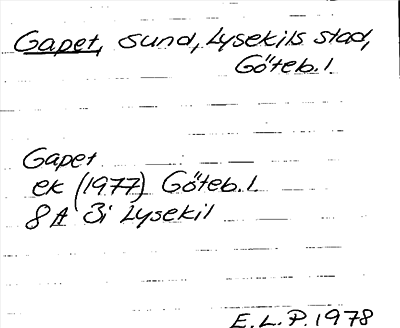 Gapet, sund, Lysekils stad,
Göteb.l.
Gapet
ek (1977) Göteb.l.
8A 3i Lysekil
E.L.P. 1978